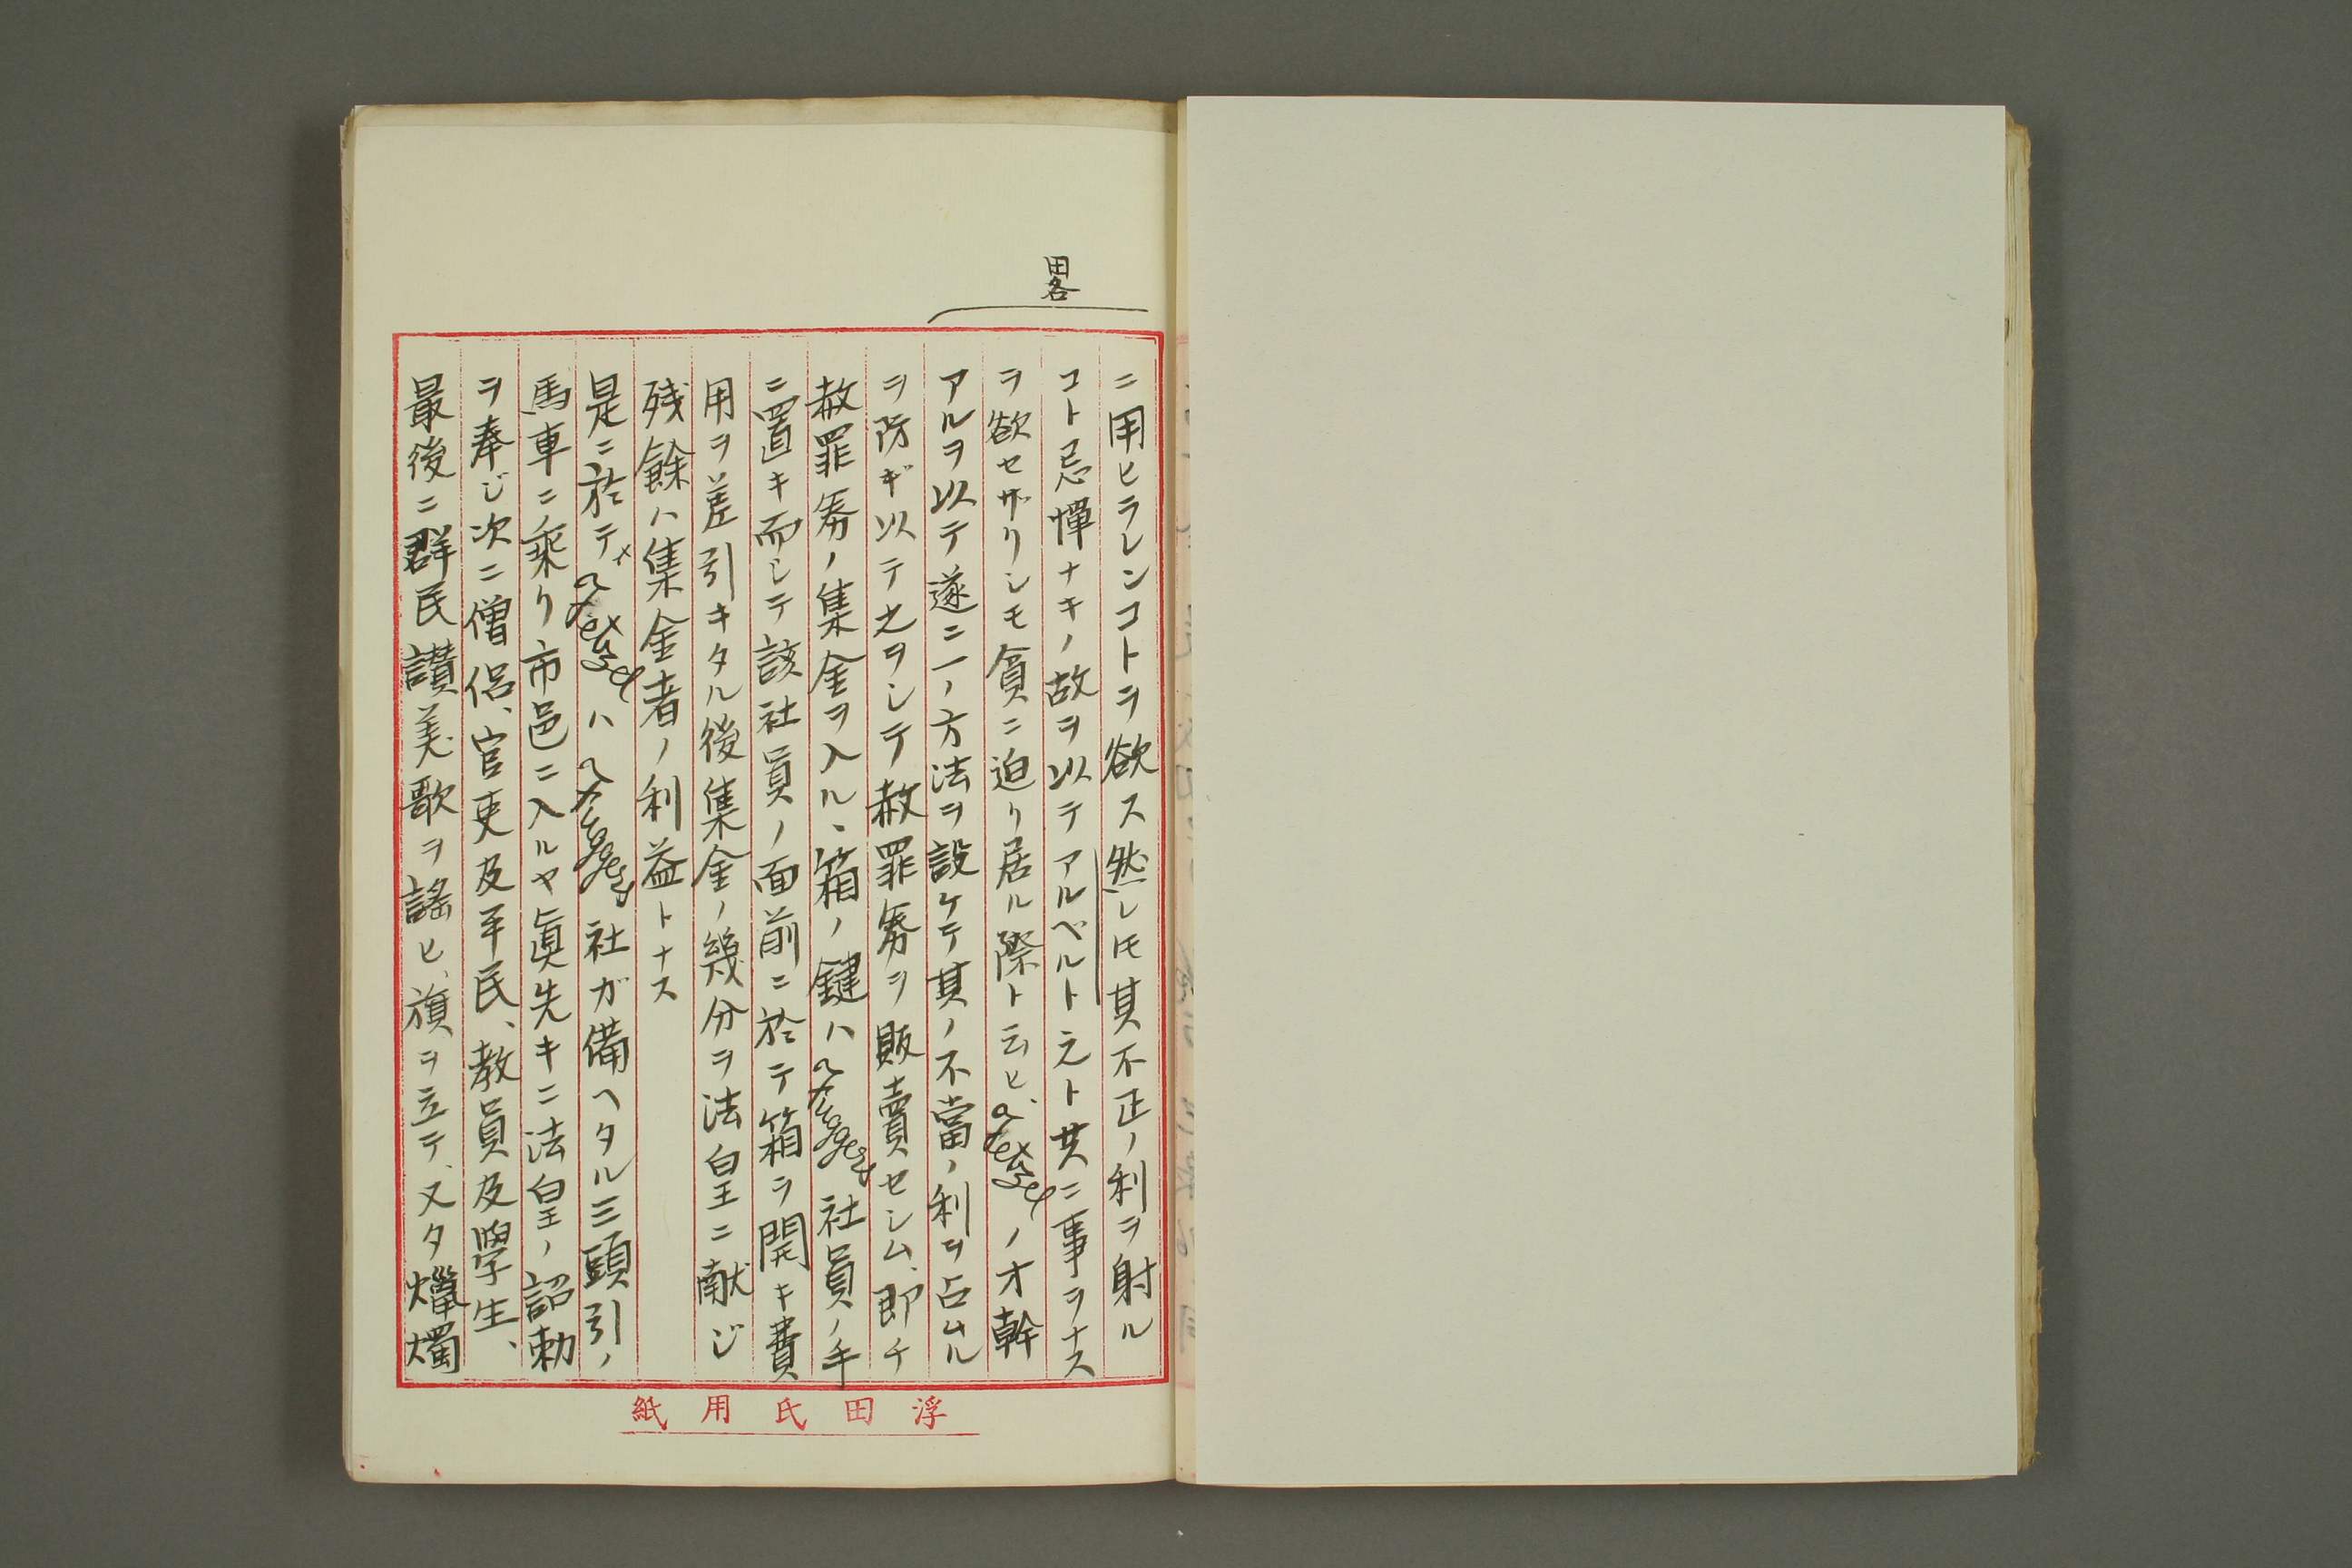 畧
ニ用ヒラレンコトヲ欲ス然レ𪜈其不正ノ利ヲ射ル
コト忌憚ナキノ故ヲ以テアルベルト之ト共ニ事ヲナス
ヲ欲セザリシモ貧ニ迫リ居ル際ト云ヒ、ノ才幹
アルヲ以テ遂ニ一ノ方法ヲ設ケテ其ノ不當ノ利ヲ占ムル
ヲ防ギ以テ之ヲシテ赦罪券ヲ販賣セシム、即チ
赦罪券ノ集金ヲ入ル、箱ノ鍵ハ社員ノ手
ニ置キ而シテ該社員ノ面前ニ於テ箱ヲ開キ費
用ヲ差引キタル後集金ノ幾分ヲ法皇ニ献ジ
残餘ハ集金者ノ利益トナス
是ニ於テハ社ガ備ヘタル三頭引ノ
馬車ニ乘リ市邑ニ入ルヤ眞先キニ法皇ノ詔勅
ヲ奉ジ次ニ僧侶、官吏及平民、教員及學生、
最後ニ群民讃美歌ヲ謡ヒ、旗ヲ立テ、又タ爉燭
浮田氏用紙